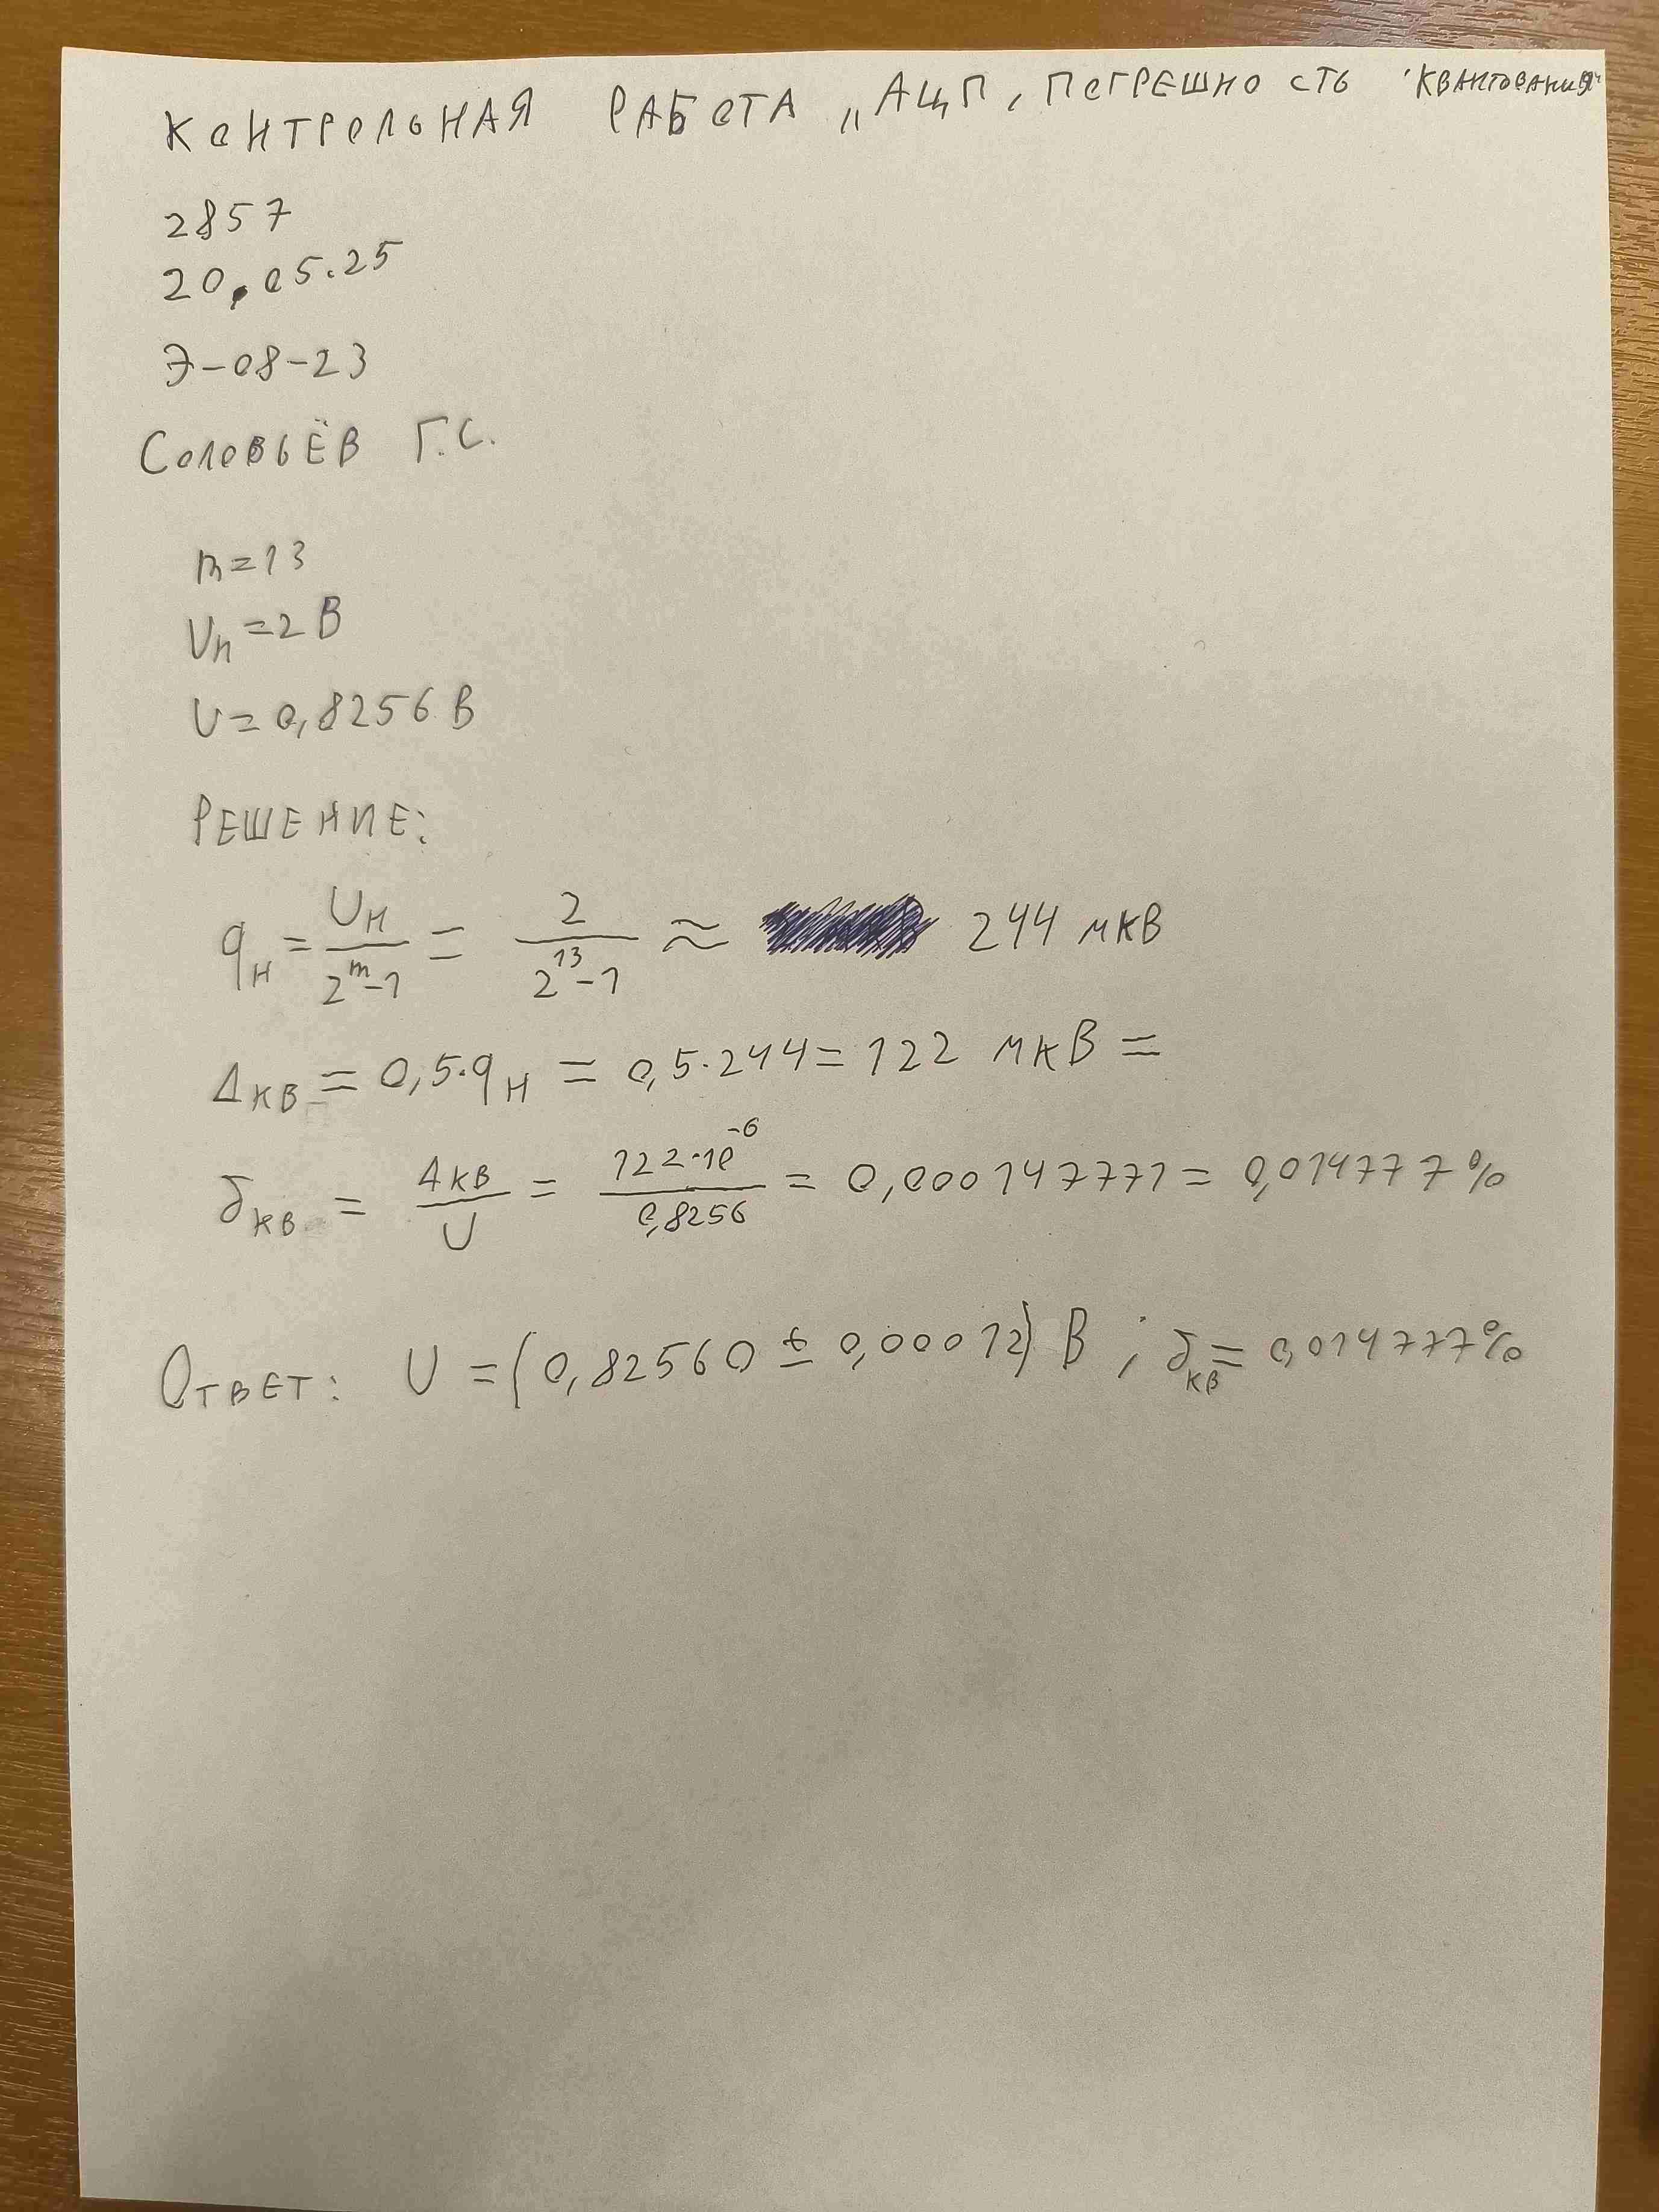 КОНТРОЛЬНАЯ РАБОТА „АЦП, ПОГРЕШНОСТЬ КВАНТОВАНИЯ"
2857
20.05.25
Э-08-23
СОЛОВЬЁВ Г.С.
m=13
Uн=2 В
U=0,8256 В
РЕШЕНИЕ:
qн = Uн / (2^m-1) = 2 / (2^13-1) ≈ 244 мкВ
Δкв = 0,5·qн = 0,5·244 = 122 мкВ =
δкв = Δкв / U = 122·10^-6 / 0,8256 = 0,000147771 = 0,014777%
ОТВЕТ: U = (0,82560 ± 0,00012) В ; δкв = 0,014777%